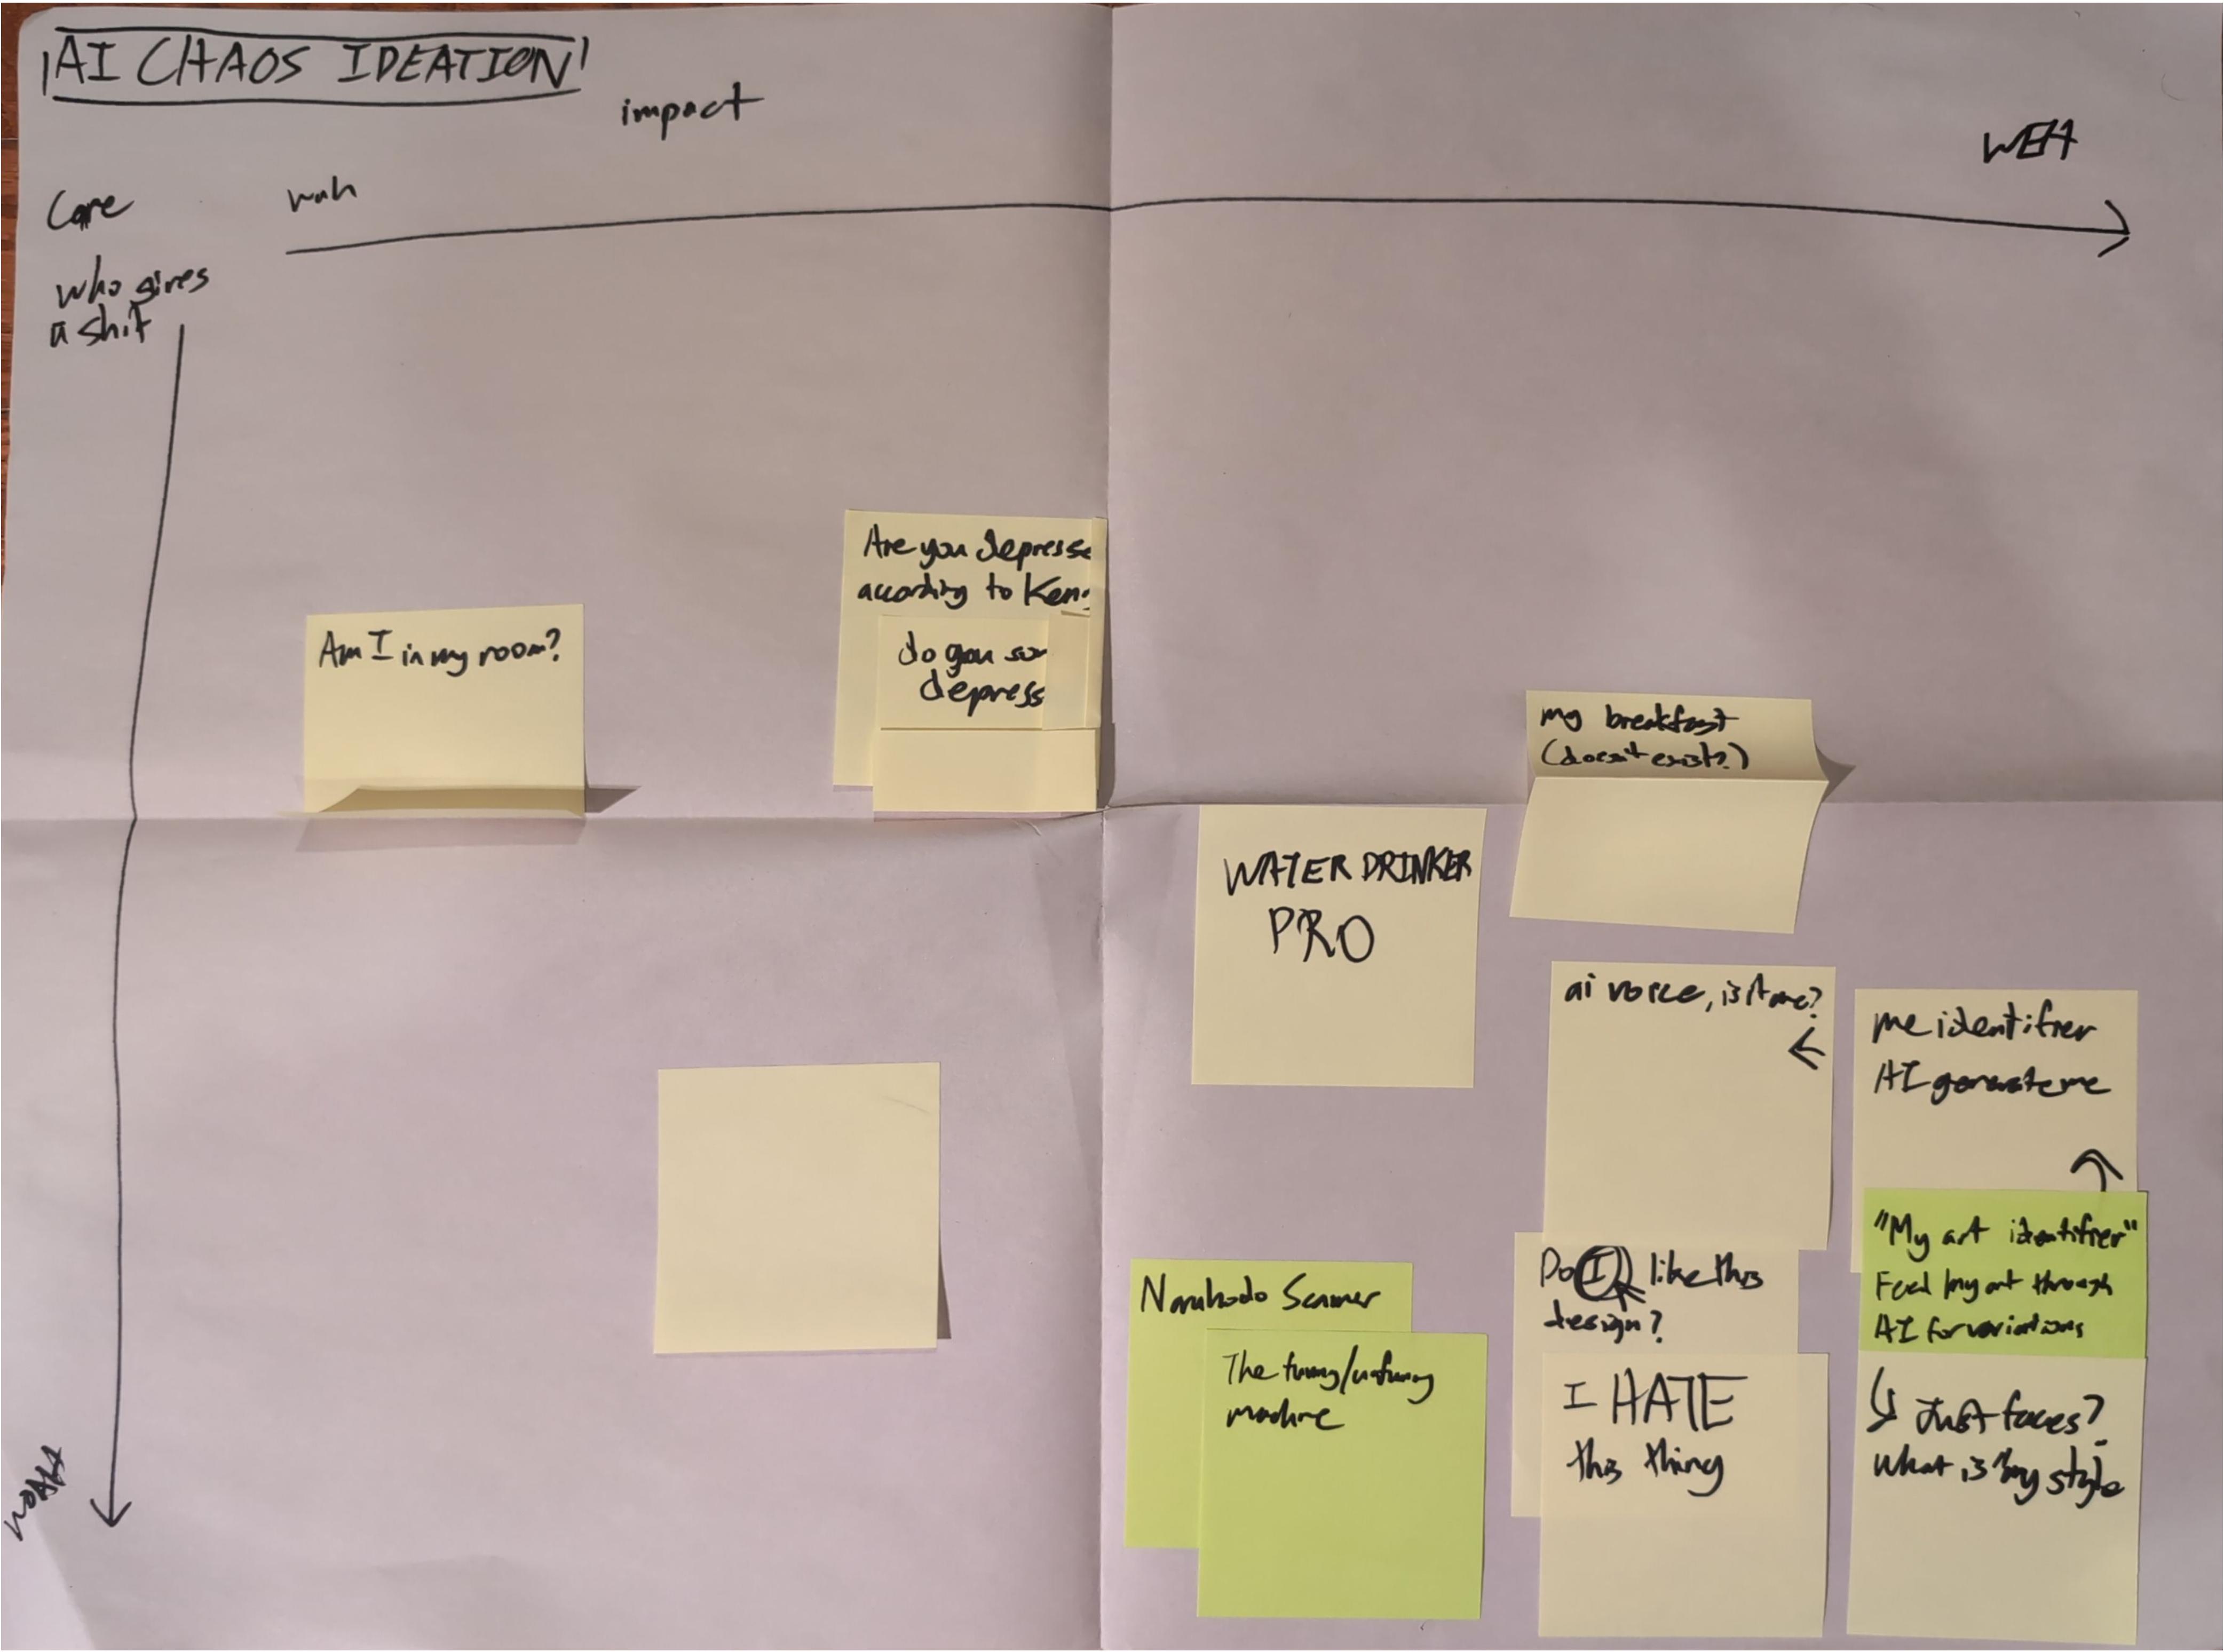 AI CHAOS IDEATION
impact
WEH
wah
Care
who gives
a shit
Are you depresse
according to Ken
do you so
depress
Am I in my room?
my breakfast
(doesn't exist?)
WATER DRINKER
PRO
ai voice, is it me?
me identifier
AI generate me
"My art identifier"
Feed my art through
AI for variations
Just faces?
What is "my style
Do I like this
design?
I HATE
this thing
Naruhodo Scanner
The funny/unfunny
machine
WOAH